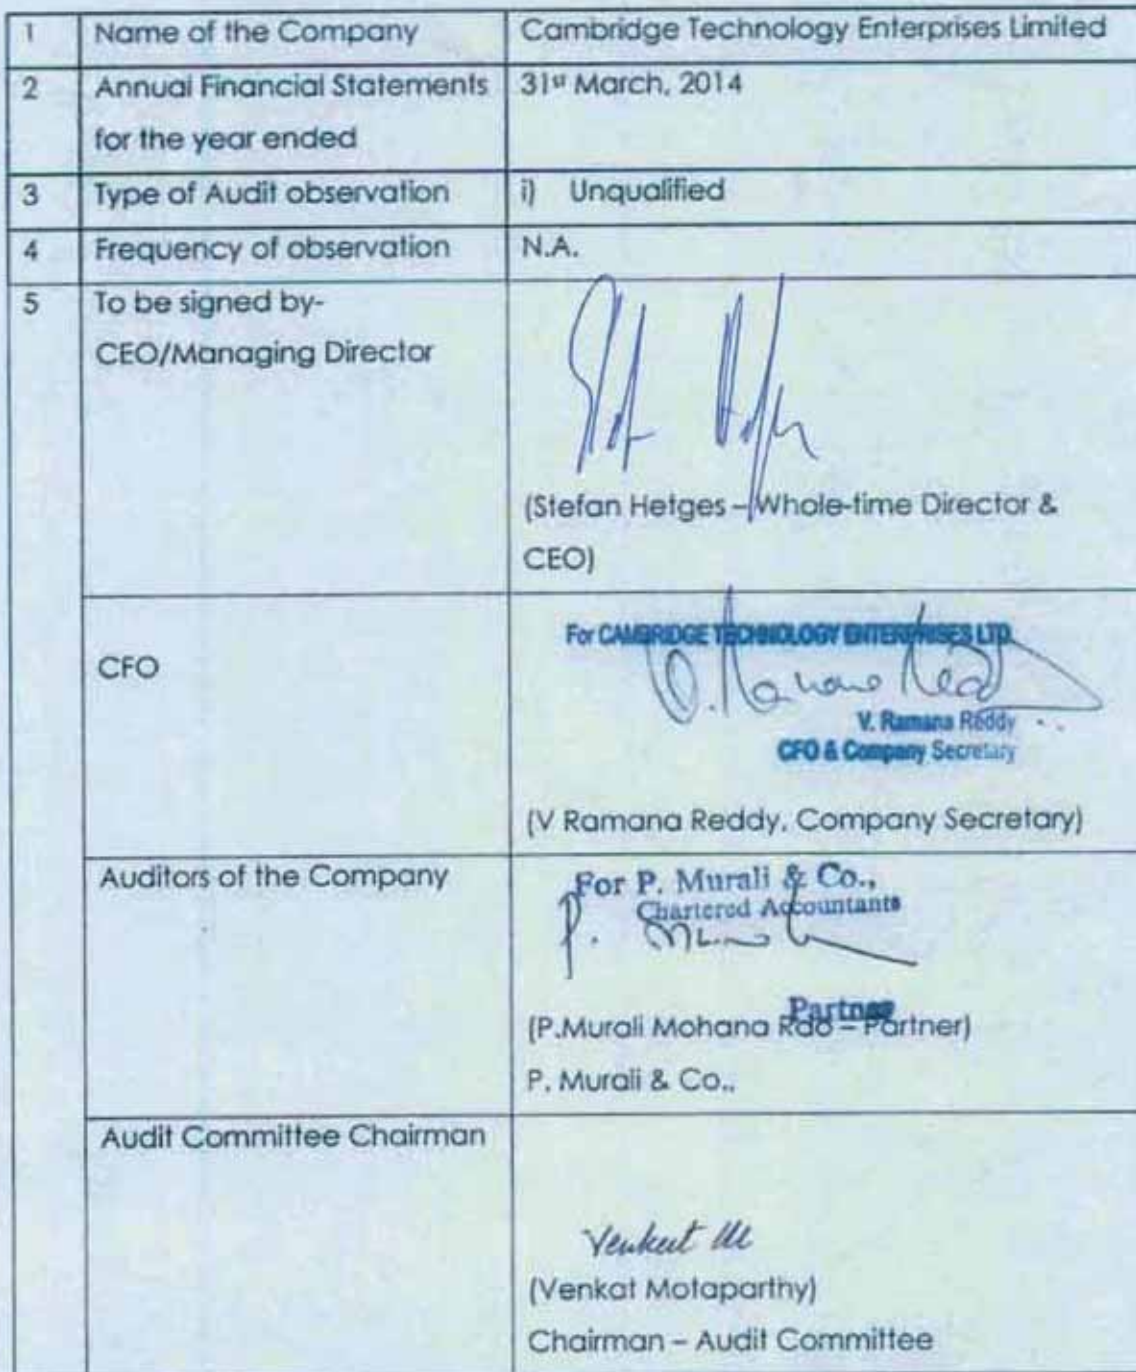 1 Name of the Company Cambridge Technology Enterprises Limited
2 Annual Financial Statements 31st March, 2014
for the year ended
3 Type of Audit observation i) Unqualified
4 Frequency of observation N.A.
5 To be signed by-
CEO/Managing Director
(Stefan Hetges – Whole-time Director &
CEO)
For CAMBRIDGE TECHNOLOGY ENTERPRISES LTD.
CFO
V. Ramana Reddy
V. Ramana Reddy
CFO & Company Secretary
(V Ramana Reddy, Company Secretary)
Auditors of the Company For P. Murali & Co.,
Chartered Accountants
P.
Partner
(P.Murali Mohana Rao – Partner)
P. Murali & Co.,
Audit Committee Chairman
Venkat M
(Venkat Motaparthy)
Chairman – Audit Committee